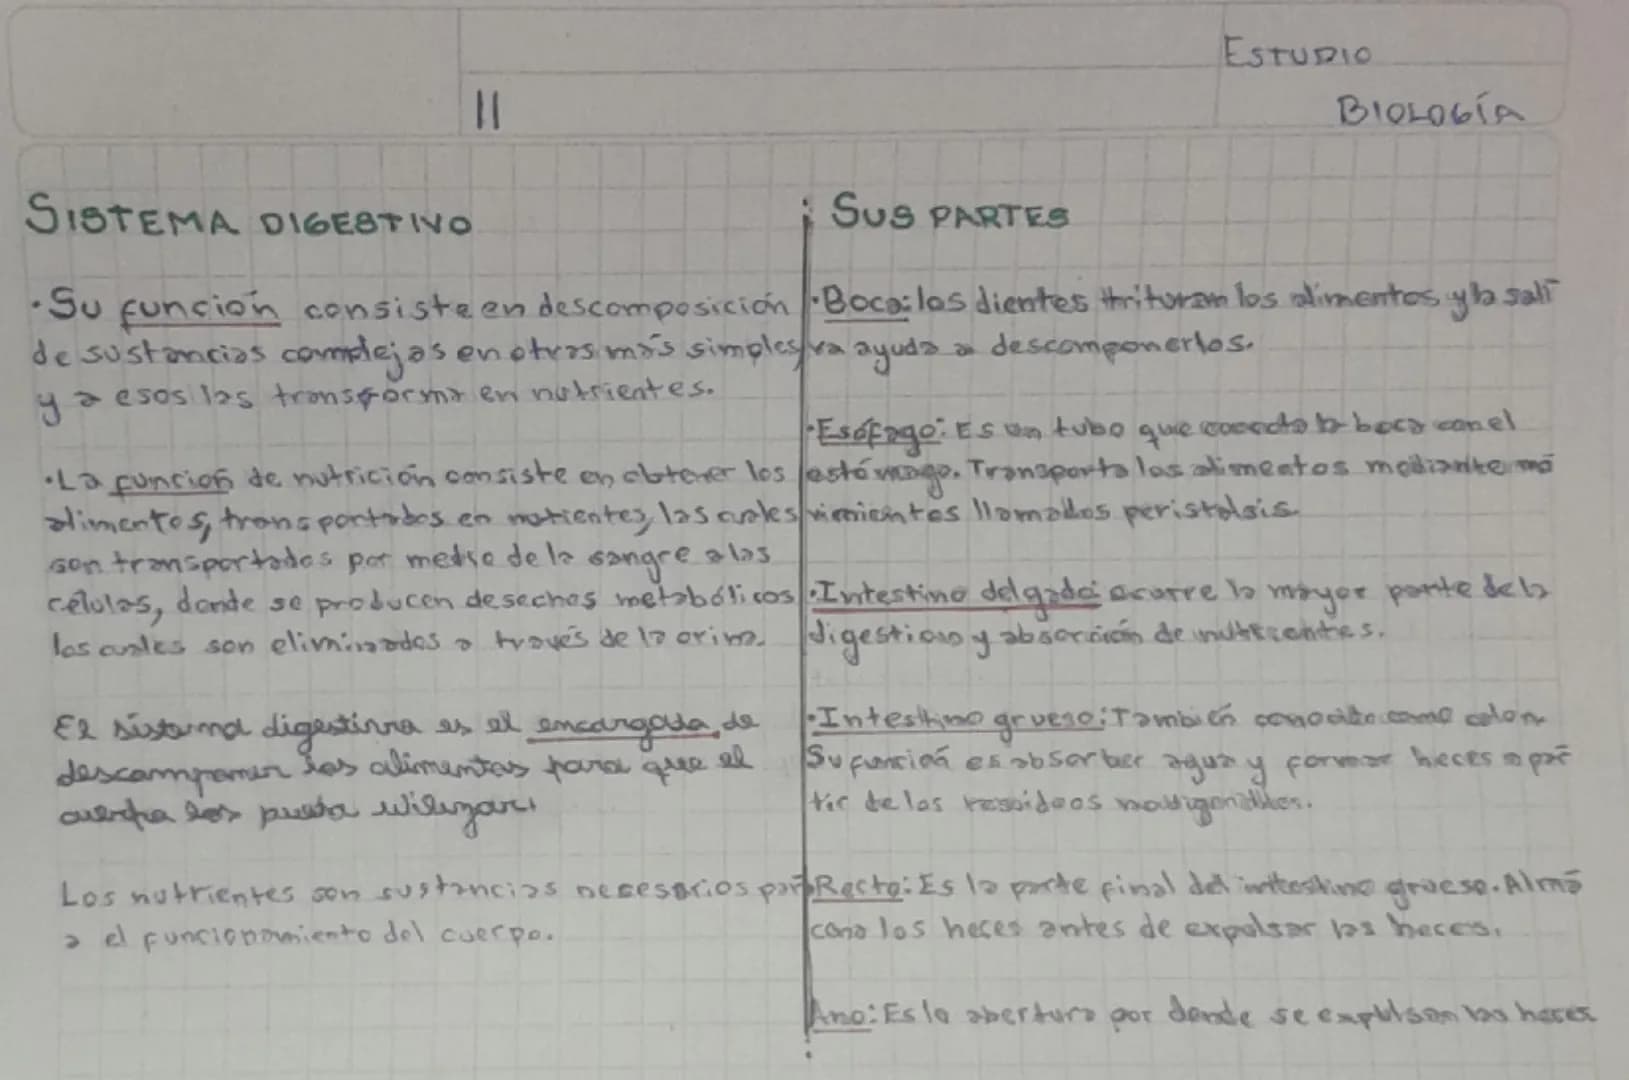 ESTUDIO
11
BIOLOGÍA
SISTEMA DIGESTIVO
·Su función consiste en descomposición
de sustancias complejas en otras más simples
y a esos las transforma en nutrientes.
·La función de nutrición consiste en obtener los
alimentos, transportabos en nutientes, las cuales
son transportados por medio de la sangre a las
células, donde se producen desechos metabólicos
los cuales son eliminados a través de la orina.
El sistema digestivo es el encargada de
descomponer los alimentos para que el
cuerpo los pueda utilizar.
Los nutrientes son sustancias necesarios par
a el funcionamiento del cuerpo.
SUS PARTES
·Boca: los dientes trituran los alimentos y la sali
va ayuda a descomponerlos.
·Esófago: Es un tubo que conecta la boca con el
estómago. Transporta los alimentos mediante mo
vimientos llamados peristalsis
·Intestino delgado: ocurre la mayor parte de la
digestion y absorción de nutrientes.
·Intestino grueso: También conocido como colon
Su función es absorber agua y formar heces a par
tir de los residuos
·Recto: Es la parte final del intestino grueso. Alma
cena los heces antes de expulsar las heces.
Ano: Es la abertura por donde se expulsan las heces